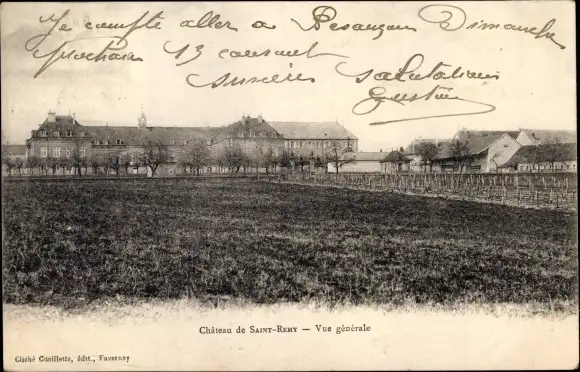 Je compte aller a Besançon Dimanche
prochain 13 courant
Sincère Salutations
Gustave
Château de SAINT-REMY — Vue générale
Cliché Cuaillette, édit., Faverney